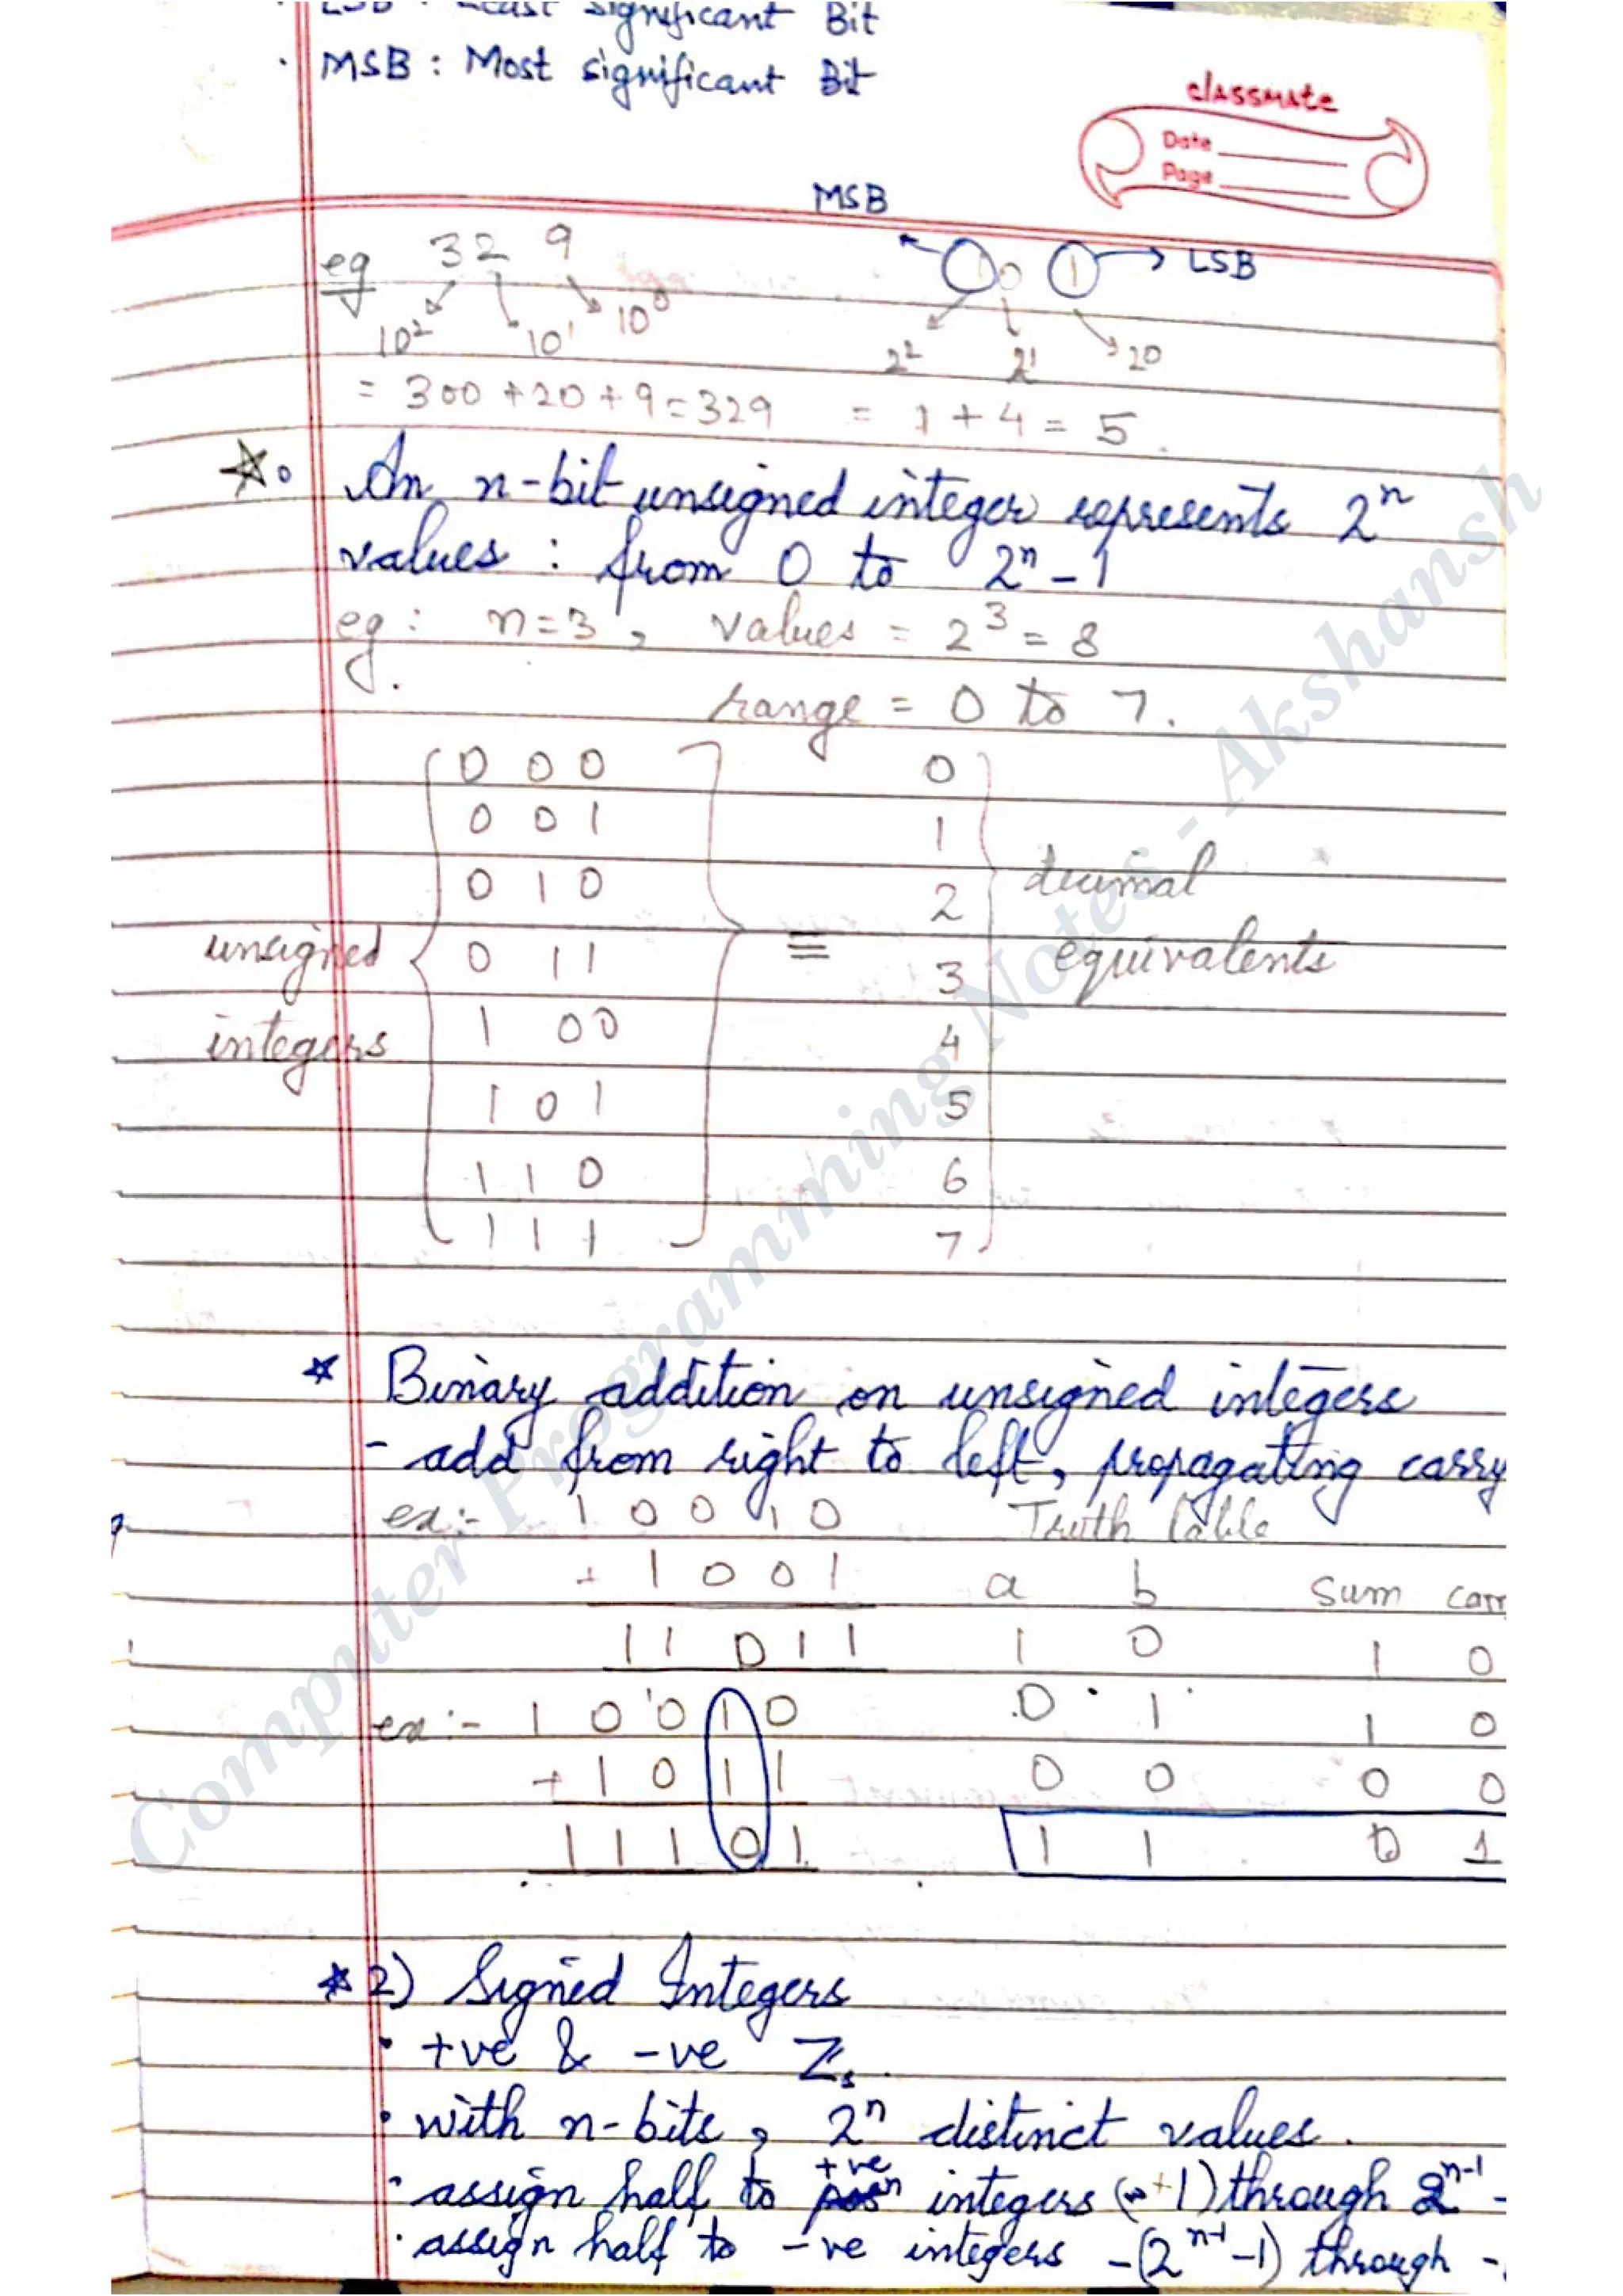 LSB : Least significant Bit
· MSB : Most significant Bit
classmate
Date
Page
MSB
eg 3 2 9
1 0 1 → LSB
10² 10¹ 10⁰
2² 2¹ 20
= 300 + 20 + 9 = 329 = 1 + 4 = 5.
☆• An n-bit unsigned integer represents 2ⁿ
values : from 0 to 2ⁿ - 1
eg : n = 3 , values = 2³ = 8
range = 0 to 7.
0 0 0 0
0 0 1 1
0 1 0 2 decimal
unsigned 0 1 1 ≡ 3 equivalents
integers 1 0 0 4
1 0 1 5
1 1 0 6
1 1 1 7
* Binary addition on unsigned integers
- add from right to left, propagating carry
ex:- 1 0 0 1 0 Truth table
+ 1 0 0 1 a b sum carr
1 1 0 1 1 1 0 1 0
ex:- 1 0 0 1 0 0 1 1 0
+ 1 0 1 1 0 0 0 0
1 1 1 0 1 1 1 0 1
* 2) Signed Integers
· +ve & -ve Zs.
· with n-bits, 2ⁿ distinct values.
· assign half to +ve integers (+1) through 2ⁿ⁻¹ -
· assign half to -ve integers -(2ⁿ⁻¹-1) through -
Computer Programming Notes - Akshansh